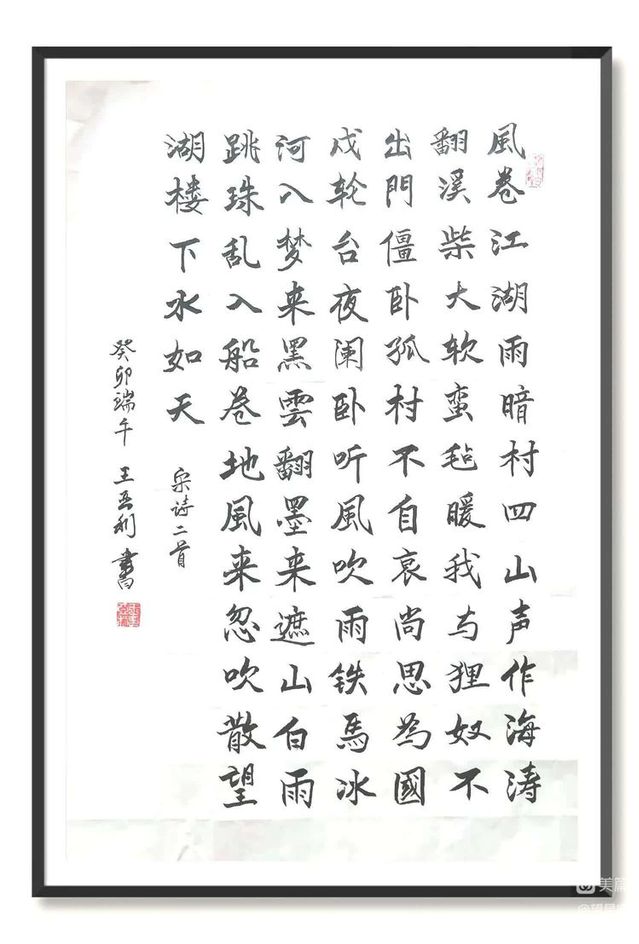 風卷江湖雨暗村四山声作海涛
翻溪柴大软蛮毡暖我与狸奴不
出門僵卧孤村不自哀尚思為國
戍轮台夜阑卧听風吹雨铁馬冰
河入梦来黑雲翻墨来遮山白雨
跳珠乱入船卷地風来忽吹散望
湖楼下水如天
宋诗二首
癸卯端午 書
美篇